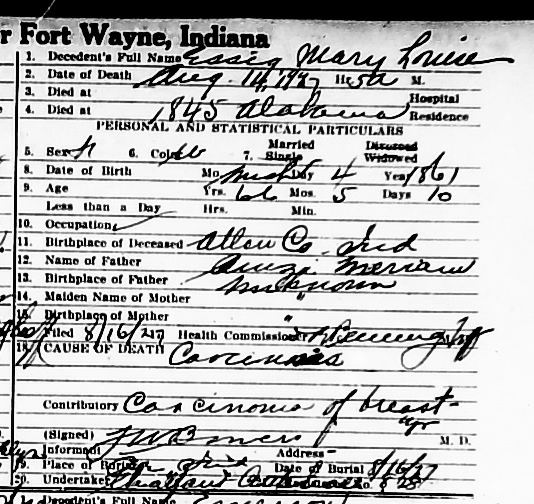 r Fort Wayne, Indiana
1. Decedent's Full Name Essig Mary Louise
2. Date of Death Aug. 14, 1927 Hr. 5a M.
3. Died at Hospital
4. Died at 1845 Alabama Residence
PERSONAL AND STATISTICAL PARTICULARS
5. Sex 6. Color W 7. Married Single Divorced Widowed
8. Date of Birth Mo. March Day 4 Year 1861
9. Age Yrs. 66 Mos. 5 Days 10
Less than a Day Hrs. Min.
10. Occupation
11. Birthplace of Deceased Allen Co. Ind
12. Name of Father Merriam
13. Birthplace of Father Unknown
14. Maiden Name of Mother "
15. Birthplace of Mother "
Filed 8/16/27 Health Commissioner
18. CAUSE OF DEATH
Contributory Carcinoma of breast
(Signed) M. D.
Informant Address
19. Place of Burial Date of Burial 8/16/27
20. Undertaker
Decedent's Full Name